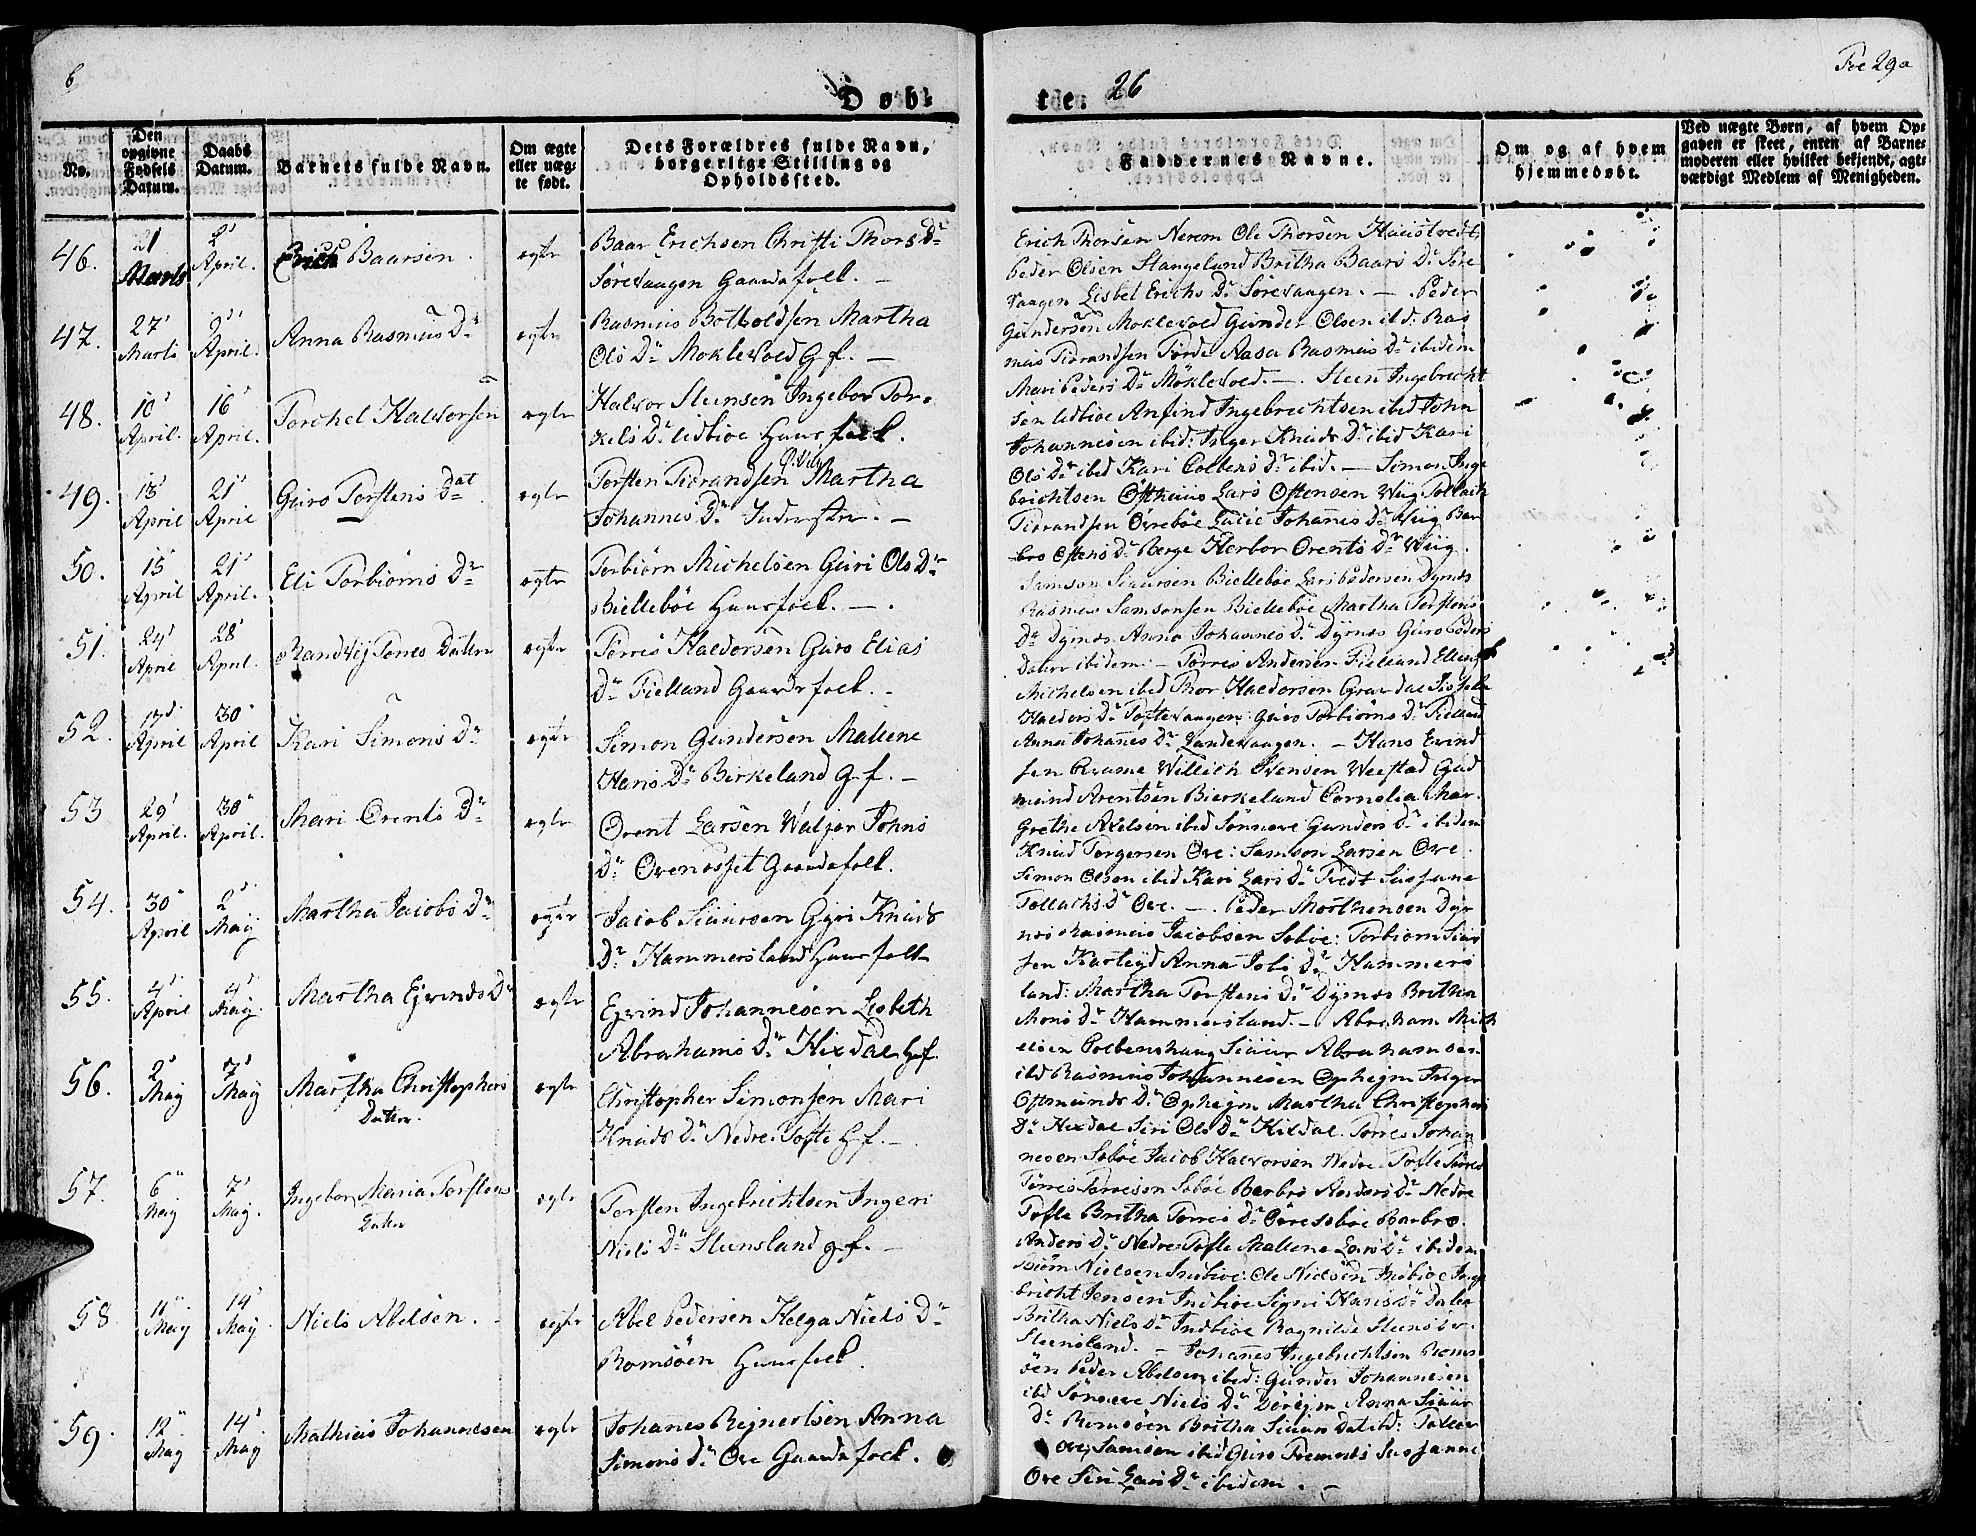 6
Døb=
No.
Den
opgivne
Fødsels
Datum.
Daabs
Datum.
Barnets fulde Navn.
Om ægte
eller uæg=
te født.
Dets Forældres fulde Navn,
borgerlige Stilling og
Opholdssted.
46.
21
Marts
2
April.
Erich Baarsen.
egte
Baar Erichsen Christi Thors Dr
Sørevaagen Gaardsfolk. —
47.
27
Marts
2
April.
Anna Rasmus Dr
egte
Rasmus Botholdsen Martha
Ols Dr Moklevold G. f. —
48.
10
April.
16
April.
Torchel Halvorsen
egte
Halvor Steensen Ingebor Tor=
kels Dr Lidbioe Huusfolk.
49.
13
April
21
April
Guro Torstens Dat
egte
Torsten Tidrandsen Martha
Johannes Dr Inderstre. —
50.
15
April
21
April.
Eli Torbiørns Dr
egte
Torbiørn Michelsen Guri Ols Dr
Biellebøe Huusfolk. —.
51.
24
April
28
April.
Randvij Tørres Datter
egte
Torris Haldorsen Guro Elias
Dr Fielland Gaardsfolk. -
52.
13
April
30
April
Kari Simons Dr
egte
Simon Gundersen Mallene
Hans Dr Birkeland G. f. —
53
29
April.
30
April.
Mari Orents Dr
egte
Orent Larsen Waljer Johns
Dr Gaardsfolk.
54.
30
April
2
Maij
Martha Jacobs Dr
egte
Jacob Siursen Gyri Knuds
Dr Hammersland Huusfolk
55.
4
April
4
Maij.
Martha Ejvinds Dr
egte
Ejvind Johannesen Lisbeth
Abrahams Dr Hixdal H. f.
56.
2
Maij
7
Maij
Martha Christophers
Datter.
egte
Christopher Simonsen Mari
Knuds Dr Nedre Tofte H. f. —
57.
6
Maij
7
Maij.
Ingebor Maria Torstens
Datter
egte
Torsten Ingebrichtsen Ingeri
Niels Dr Steensland g. f. —
58
11
Maij
14
Maij
Niels Abelsen. -
egte
Abel Pedersen Helga Niels Dr
Romsöen Huusfolk.
59.
12
Maij
14
Maij
Mathias Johannesen
egte
Johanes Rejnertsen Anna
Simons Dr Ove Gaardsfolk.
26
te.
Faddernes Navne.
Om og af hvem
hjemmedøbt.
Ved uægte Børn, af hvem Op=
gaven er skeet, enten af Barne=
moderen eller hvilket bekjendt, agt=
værdigt Medlem af Menigheden.
29a
Erich Thorsen Nerem Ole Thorsen Haustvedt,
Peder Olsen Stangeland Britha Baars Dr Søre
vaagen Lisbet Erichs Dr Sørevaagen. — Peder
Gundersen Moklevold Gunder Olsen ibd: Ras
mus Tidrandsen Aasa Rasmus Dr ibidem
Mari Peders Dr Möklevold. — Steen Ingebrecht
sen Lidbioe Anfind Ingebrechtsen ibid John
Johannesen ibid: Inger Knuds Dr ibid Kari
Ols Dr ibid Kari Colbens Dr ibid. — Simon Inge
brichtsen Östhuus Lars Ostensen Wiig Tollach
Tidrandsen Övrebøe Johanes Dr Wiig Bar
bro Ostens Dr Berge Herbor Orents Dr Wiig.
Samson Siursen Biellebøe Lars Pedersen Dyrnes
Rasmus Samsonsen Biellebøe Martha Torstens
Dr Dyrnes Anna Johannes Dr Dyrnes Guro Peders
Datter ibidem. — Torris Andersen Fielland Elling
Michelsen ibid Thor Haldorsen Gravdal
Halders Dr Toftevaagen: Guro Torbiørns Dr Fielland
Anna Johanes Dr Landevaagen. — Hans Evind
sen Willich Svensen Gud
mund Arentsen Bierkeland Cornelia Mar
Grethe Axelsen ibid Sönneve Gunders Dr ibidem
Knud Torgersen Ove: Samson Larsen Ove.
Simon Olsen ibid Kari Lars Dr Tvedt Susjane
Tollachs Dr Ove. —. Peder Morthensen Dyr
nes Rasmus Jacobsen Sebøe: Torbiorn Siur
sen Anna Johs Dr Hammers
land: Martha Torstens Dr Dyrnes Britha
Mons Dr Hammersland. — Abraham Mich
elsen Siuur Abrahamsen
ibd Rasmus Johannesen Ophejm Inger
Dr Ophejm Martha Christophers
Dr Hixdal Siri Ols Dr Hixdal. Torres Johan
nesen Sebøe Jacob Halvorsen Nedre Tofte
Torris Torresen Sebøe Barbro Anders Dr Nedre
Tofte Britha Torres Dr Barbro.
Anders Dr Nedre Tofte Mallene Lars Dr ibidem
Biørn Nielsen Indbioe: Ole Nielsen Indbioe Inge
bricht Jensen Indbioe Signi Hans Dr Dalen
Britha Niels Dr Indbioe Ragnilda
Steensland. — Johanes Ingebrichtsen Roms
öen Peder Abelsen ibid: Gunder Johannesen
ibd Sönneve Niels Dr Anna Siuur
Dr Romsöen Britha Siuurs Dat ibid:
Ove, Samson ibid Guro Susjanne
Ove Siri Lars Dr ibidem. —